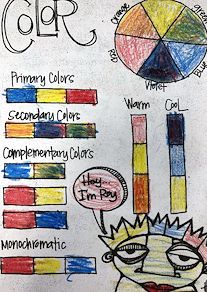 COLOR
Orange
green
Red
Blue
Violet
Primary Colors
Secondary Colors
Complementary Colors
Monochromatic
Warm
Cool
Hey,
I'm Roy